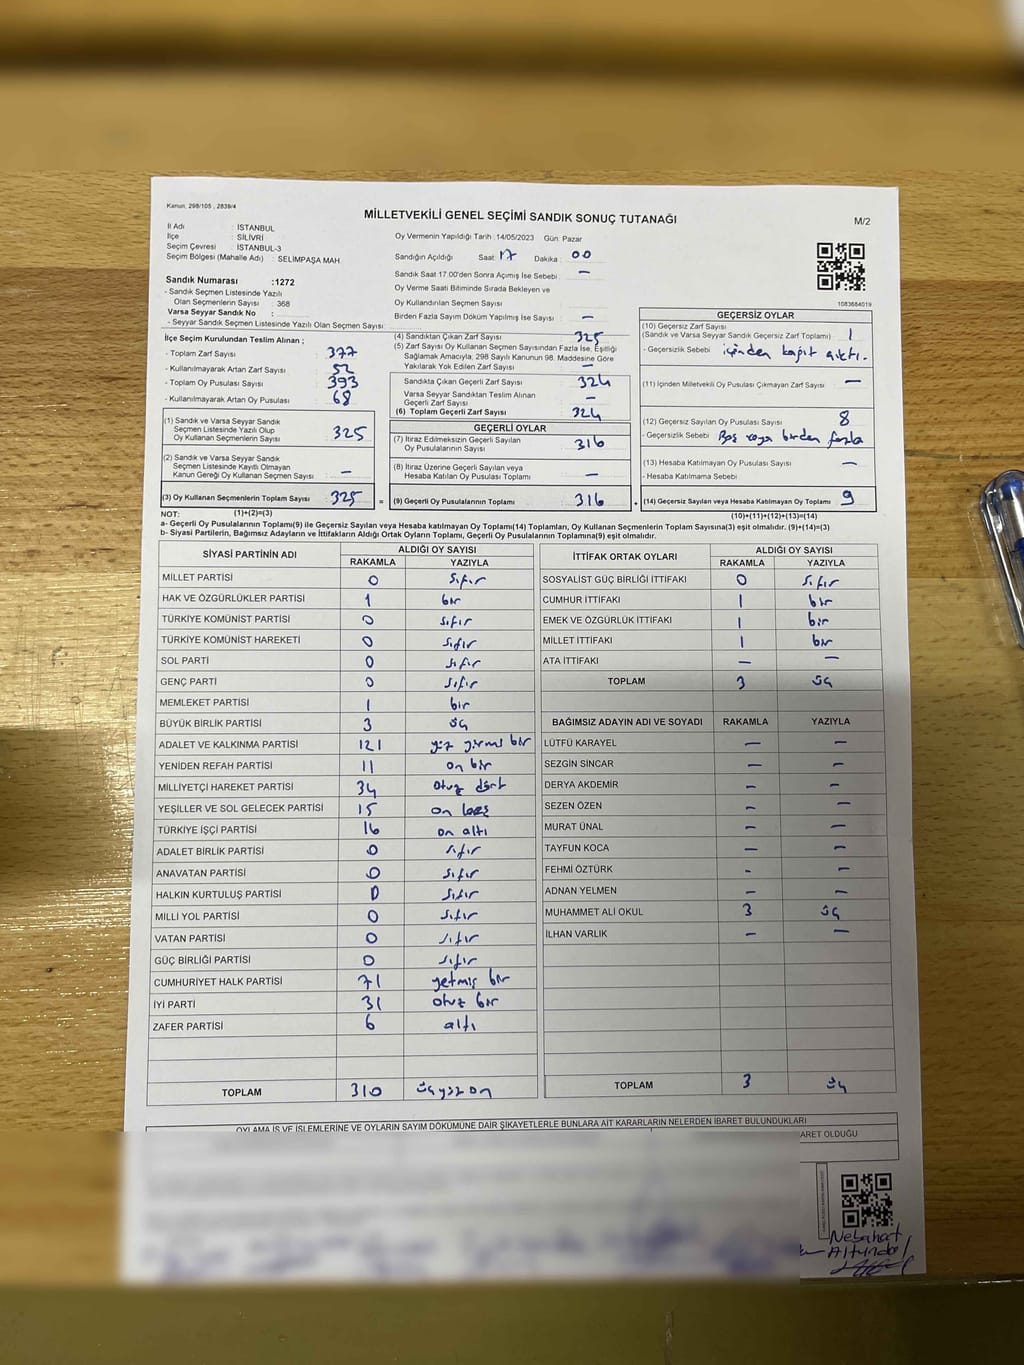 Kanun, 298/105 , 2839/4
MİLLETVEKİLİ GENEL SEÇİMİ SANDIK SONUÇ TUTANAĞI
M/2
İl Adı : İSTANBUL
İlçe : SİLİVRİ
Seçim Çevresi : İSTANBUL-3
Seçim Bölgesi (Mahalle Adı) : SELİMPAŞA MAH.
Sandık Numarası :1272
- Sandık Seçmen Listesinde Yazılı
Olan Seçmenlerin Sayısı : 368
Varsa Seyyar Sandık No :
- Seyyar Sandık Seçmen Listesinde Yazılı Olan Seçmen Sayısı:
Oy Vermenin Yapıldığı Tarih :14/05/2023 Gün: Pazar
Sandığın Açıldığı Saat 17 Dakika : 00
Sandık Saat 17.00'den Sonra Açımış İse Sebebi : —
Oy Verme Saati Bitiminde Sırada Bekleyen ve
Oy Kullandırılan Seçmen Sayısı
Birden Fazla Sayım Döküm Yapılmış İse Sayısı : —
1083684019
İlçe Seçim Kurulundan Teslim Alınan ;
- Toplam Zarf Sayısı : 377
- Kullanılmayarak Artan Zarf Sayısı : 52
- Toplam Oy Pusulası Sayısı : 393
- Kullanılmayarak Artan Oy Pusulası : 68
(1) Sandık ve Varsa Seyyar Sandık
Seçmen Listesinde Yazılı Olup
Oy Kullanan Seçmenlerin Sayısı : 325
(2) Sandık ve Varsa Seyyar Sandık
Seçmen Listesinde Kayıtlı Olmayan
Kanun Gereği Oy Kullanan Seçmen Sayısı : —
(3) Oy Kullanan Seçmenlerin Toplam Sayısı : 325 =
(4) Sandıktan Çıkan Zarf Sayısı : 325
(5) Zarf Sayısı Oy Kullanan Seçmen Sayısından Fazla İse, Eşitliği
Sağlamak Amacıyla, 298 Sayılı Kanunun 98. Maddesine Göre
Yakılarak Yok Edilen Zarf Sayısı : —
Sandıkta Çıkan Geçerli Zarf Sayısı : 324
Varsa Seyyar Sandıktan Teslim Alınan
Geçerli Zarf Sayısı : —
(6) Toplam Geçerli Zarf Sayısı : 324
GEÇERLİ OYLAR
(7) İtiraz Edilmeksizin Geçerli Sayılan
Oy Pusulalarının Toplamı : 316
(8) İtiraz Üzerine Geçerli Sayılan veya
Hesaba Katılan Oy Pusulası Toplamı : —
(9) Geçerli Oy Pusulalarının Toplamı : 316 +
GEÇERSİZ OYLAR
(10) Geçersiz Zarf Sayısı
(Sandık ve Varsa Seyyar Sandık Geçersiz Zarf Toplamı) : 1
- Geçersizlik Sebebi : içinden kağıt çıktı.
(11) İçinden Milletvekili Oy Pusulası Çıkmayan Zarf Sayısı : —
(12) Geçersiz Sayılan Oy Pusulası Sayısı : 8
- Geçersizlik Sebebi : Boş veya birden fazla
(13) Hesaba Katılmayan Oy Pusulası Sayısı : —
- Hesaba Katılmama Sebebi :
(14) Geçersiz Sayılan veya Hesaba Katılmayan Oy Toplamı : 9
NOT: (1)+(2)=(3) (10)+(11)+(12)+(13)=(14)
a- Geçerli Oy Pusulalarının Toplamı(9) ile Geçersiz Sayılan veya Hesaba katılmayan Oy Toplamı(14) Toplamları, Oy Kullanan Seçmenlerin Toplam Sayısına(3) eşit olmalıdır. (9)+(14)=(3)
b- Siyasi Partilerin, Bağımsız Adayların ve İttifakların Aldığı Ortak Oyların Toplamı, Geçerli Oy Pusulalarının Toplamına(9) eşit olmalıdır.
SİYASİ PARTİNİN ADI ALDIĞI OY SAYISI
RAKAMLA YAZIYLA
MİLLET PARTİSİ 0 sıfır
HAK VE ÖZGÜRLÜKLER PARTİSİ 1 bir
TÜRKİYE KOMÜNİST PARTİSİ 0 sıfır
TÜRKİYE KOMÜNİST HAREKETİ 0 sıfır
SOL PARTİ 0 sıfır
GENÇ PARTİ 0 sıfır
MEMLEKET PARTİSİ 1 bir
BÜYÜK BİRLİK PARTİSİ 3 üç
ADALET VE KALKINMA PARTİSİ 121 yüz yirmi bir
YENİDEN REFAH PARTİSİ 11 on bir
MİLLİYETÇİ HAREKET PARTİSİ 34 otuz dört
YEŞİLLER VE SOL GELECEK PARTİSİ 15 on beş
TÜRKİYE İŞÇİ PARTİSİ 16 on altı
ADALET BİRLİK PARTİSİ 0 sıfır
ANAVATAN PARTİSİ 0 sıfır
HALKIN KURTULUŞ PARTİSİ 0 sıfır
MİLLİ YOL PARTİSİ 0 sıfır
VATAN PARTİSİ 0 sıfır
GÜÇ BİRLİĞİ PARTİSİ 0 sıfır
CUMHURİYET HALK PARTİSİ 71 yetmiş bir
İYİ PARTİ 31 otuz bir
ZAFER PARTİSİ 6 altı
TOPLAM 310 üçyüz on
İTTİFAK ORTAK OYLARI ALDIĞI OY SAYISI
RAKAMLA YAZIYLA
SOSYALİST GÜÇ BİRLİĞİ İTTİFAKI 0 sıfır
CUMHUR İTTİFAKI 1 bir
EMEK VE ÖZGÜRLÜK İTTİFAKI 1 bir
MİLLET İTTİFAKI 1 bir
ATA İTTİFAKI — —
TOPLAM 3 üç
BAĞIMSIZ ADAYIN ADI VE SOYADI RAKAMLA YAZIYLA
LÜTFÜ KARAYEL — —
SEZGİN SİNCAR — —
DERYA AKDEMİR — —
SEZEN ÖZEN — —
MURAT ÜNAL — —
TAYFUN KOCA — —
FEHMİ ÖZTÜRK - —
ADNAN YELMEN — —
MUHAMMET ALİ OKUL 3 üç
İLHAN VARLIK — —
TOPLAM 3 üç
OYLAMA İŞ VE İŞLEMLERİNE VE OYLARIN SAYIM DÖKÜMÜNE DAİR ŞİKAYETLERLE BUNLARA AİT KARARLARIN NELERDEN İBARET BULUNDUKLARI
ARET OLDUĞU
Nebahat
Altundal